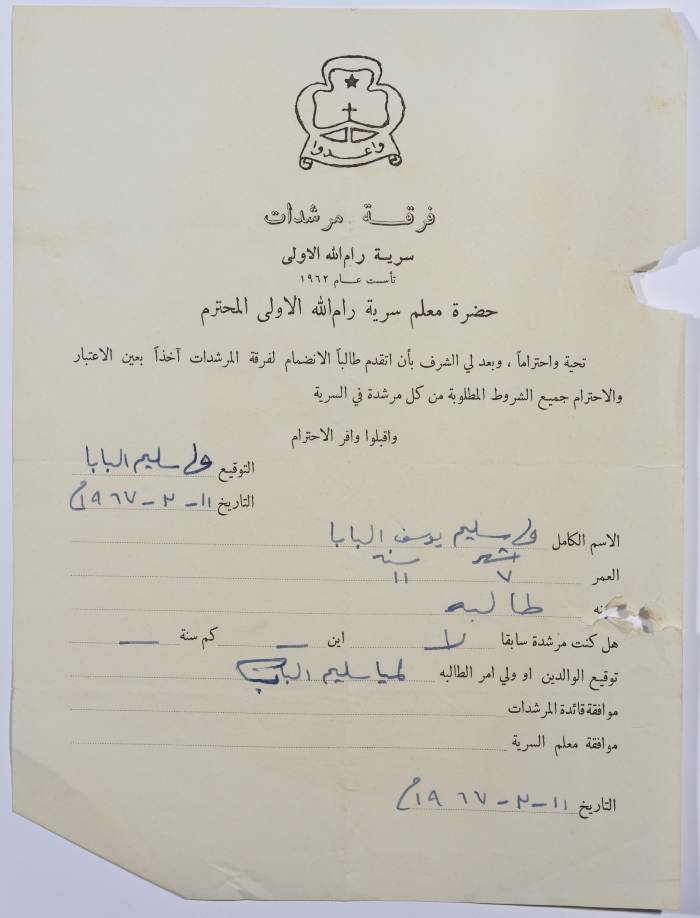 واعدوا
فرقة مرشدات
سرية رام الله الاولى
تأسست عام ١٩٦٢
حضرة معلم سرية رام الله الاولى المحترم
تحية واحتراماً ، وبعد لي الشرف بأن اتقدم طالباً الانضمام لفرقة المرشدات آخذاً بعين الاعتبار
والاحترام جميع الشروط المطلوبة من كل مرشدة في السرية
واقبلوا وافر الاحترام
التوقيع سليم البابا
التاريخ ١١-٢-١٩٦٧م
الاسم الكامل سليم يوسف البابا
العمر ٧ اشهر ١١ سنة
طالبه
هل كنت مرشدة سابقا لا اين — كم سنة —
توقيع الوالدين او ولي امر الطالبه لميا سليم البابا
موافقة قائدة المرشدات
موافقة معلم السرية
التاريخ ١١-٢-١٩٦٧م